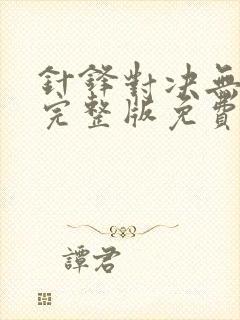 針鋒對决無
完整版免費
譚君